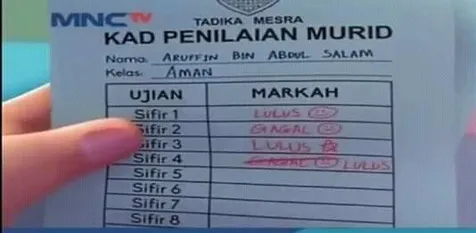 MNCTV
TADIKA MESRA
KAD PENILAIAN MURID
Nama: ARUFFIN BIN ABDUL SALAM
Kelas: AMAN
UJIAN MARKAH
Sifir 1 LULUS
Sifir 2 GAGAL
Sifir 3 LULUS
Sifir 4 GAGAL LULUS
Sifir 5
Sifir 6
Sifir 7
Sifir 8